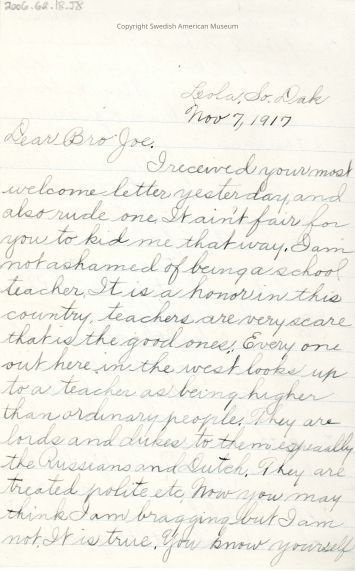 2006.62.18.J8
Copyright Swedish American Museum
Leola, So. Dak
Nov 7, 1917
Dear Bro Joe.
I received your most
welcome letter yesterday, and
also rude one. It ain't fair for
you to kid me that way. I am
not ashamed of being a school
teacher. It is a honor in this
country, teachers are very scare
that is the good ones. Every one
out here in the west looks up
to a teacher as being higher
than ordinary people. They are
lords and dukes to them especially
the Russians and Dutch. They are
treated polite etc, Now you may
think I am bragging but I am
not. It is true. You know yourself